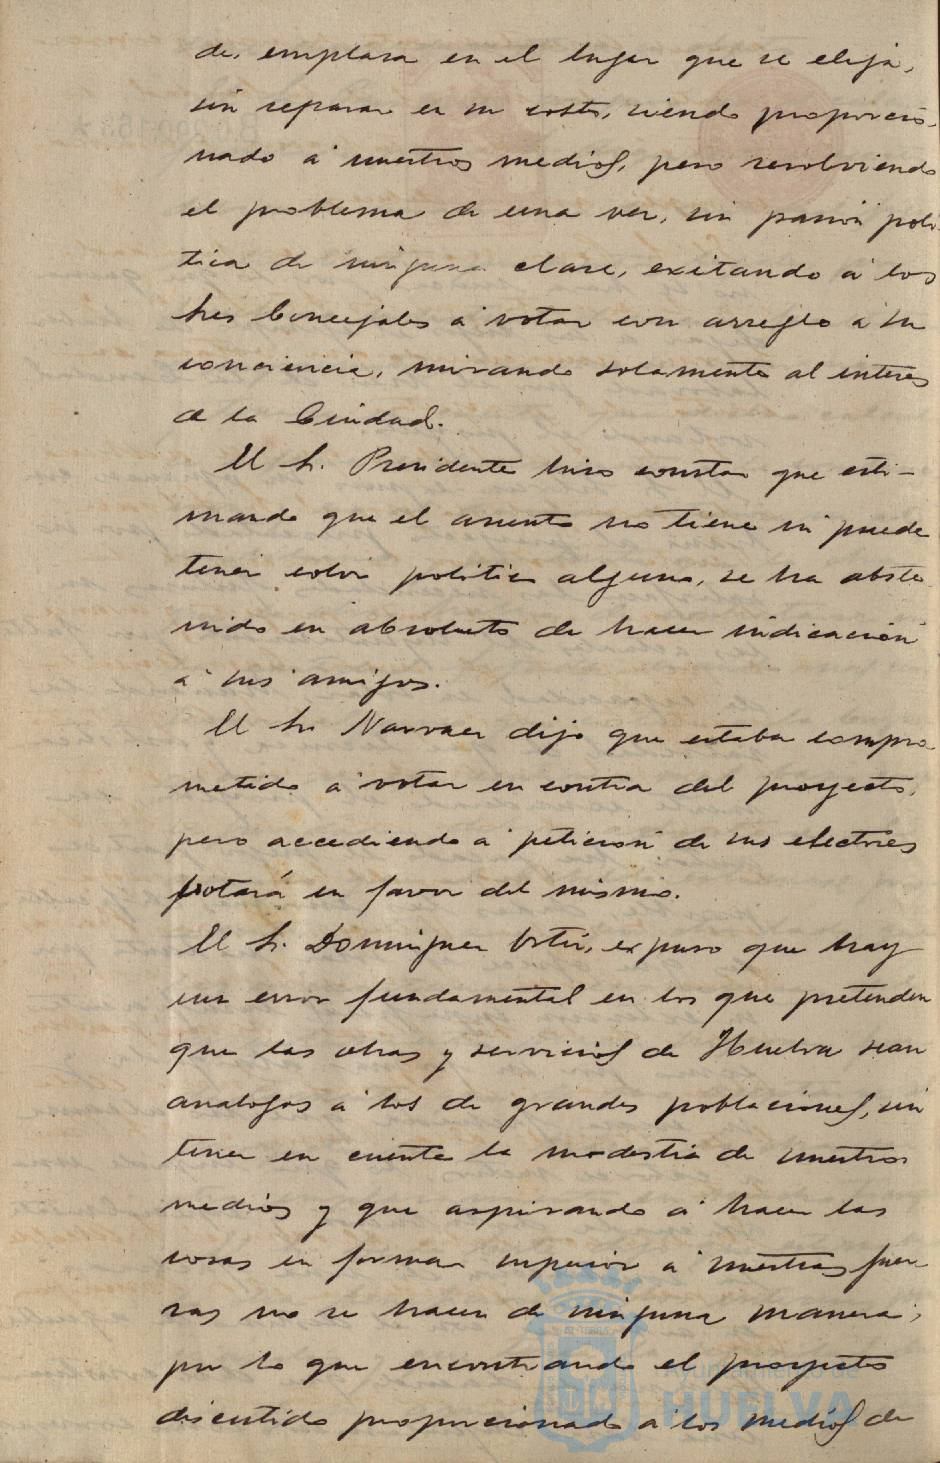 de emplasa en el lugar que se elija,
sin reparar en su costo, siendo proporcio
nado á nuestros medios, pero resolviendo
el problema de una vez, sin pasión poli
tica de ninguna clase, exitando á los
Sres Concejales á votar con arreglo á su
conciencia, mirando solamente al interes
de la Ciudad.
El Sr. Presidente hizo constar que esti-
mando que el asunto no tiene ni puede
tener color politico alguno, se ha abste
nido en absoluto de hacer indicación
á sus amigos.
El Sr. Narvaez dijo que estaba compro
metido á votar en contra del proyecto,
pero accediendo á petición de sus electores
votará en favor del mismo.
El Sr. Dominguez Ortiz, expuso que hay
un error fundamental en los que pretenden
que las obras y servicios de Huelva sean
analogos á los de grandes poblaciones, sin
tener en cuenta la modestia de nuestros
medios y que aspirando á hacer las
cosas en forma superior á nuestras fuer
zas no se hacen de ninguna manera;
por lo que encontrando el proyecto
discutido proporcionado á los medios de
Ayuntamiento de
HUELVA